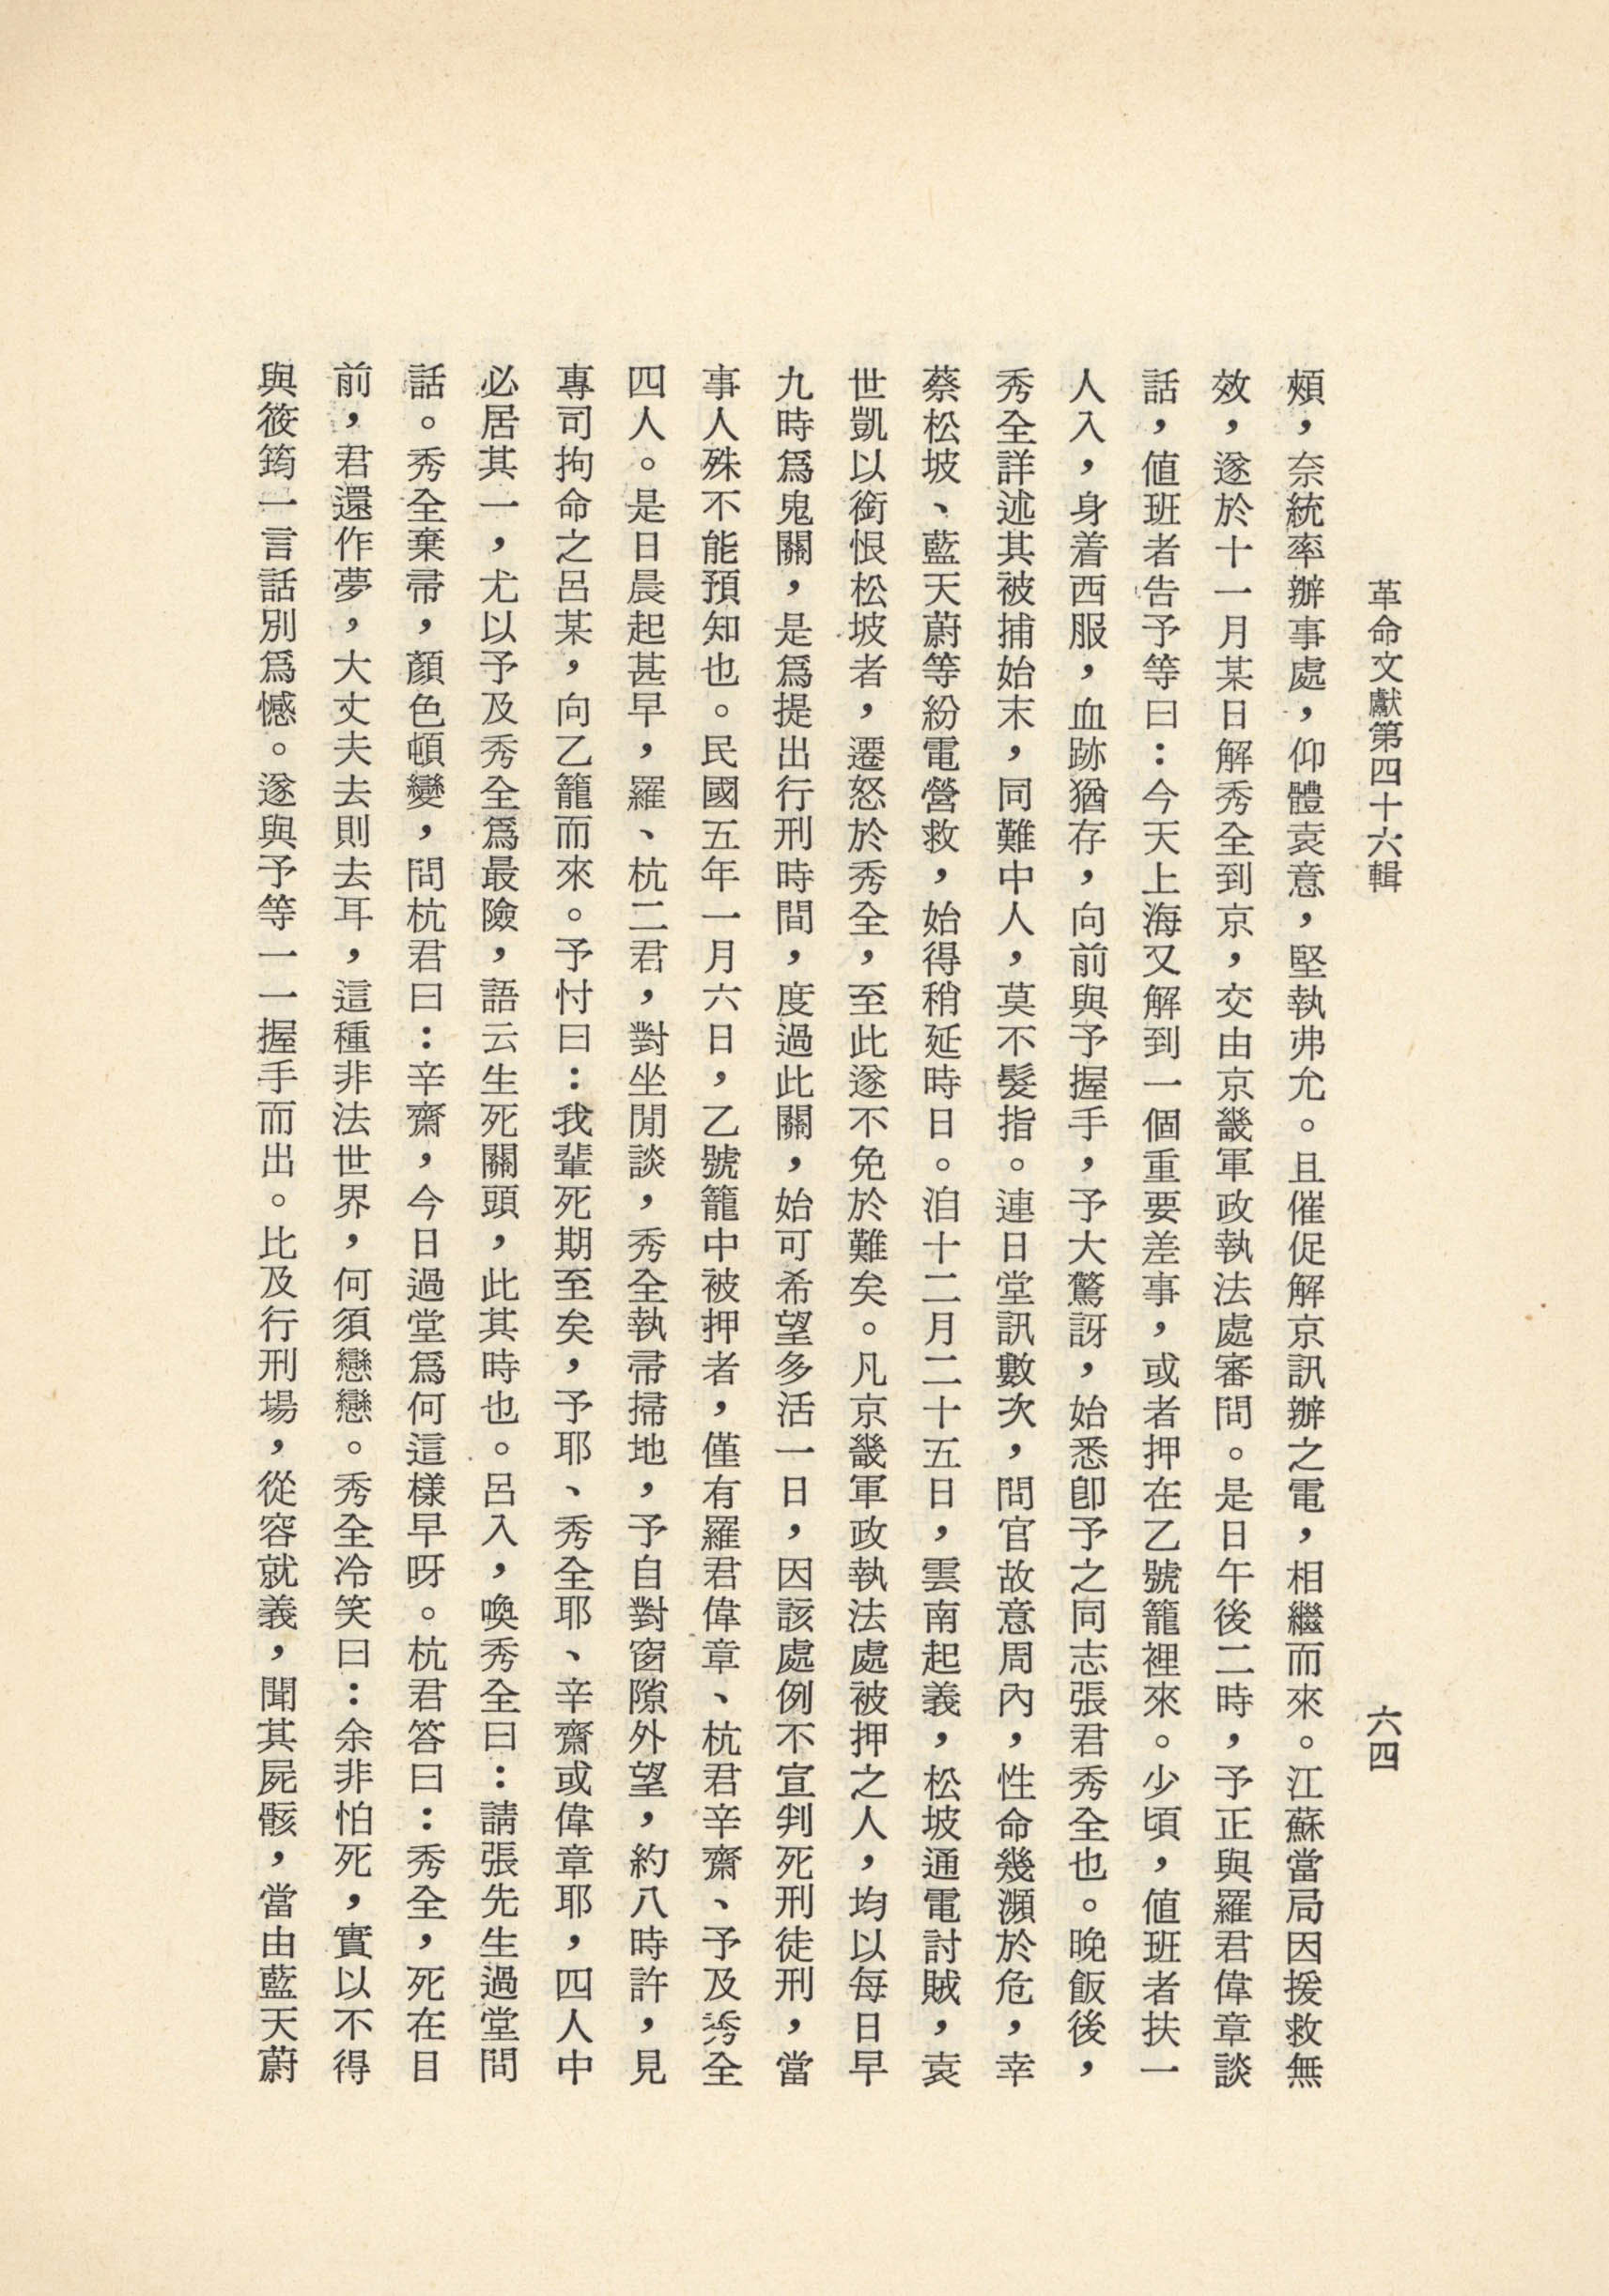 革命文獻第四十六輯
六四
頰，奈統率辦事處，仰體袁意，堅執弗允。且催促解京訊辦之電，相繼而來。江蘇當局因援救無
效，遂於十一月某日解秀全到京，交由京畿軍政執法處審問。是日午後二時，予正與羅君偉章談
話，值班者告予等曰：今天上海又解到一個重要差事，或者押在乙號籠裡來。少頃，值班者扶一
人入，身着西服，血跡猶存，向前與予握手，予大驚訝，始悉卽予之同志張君秀全也。晚飯後，
秀全詳述其被捕始末，同難中人，莫不髮指。連日堂訊數次，問官故意周內，性命幾瀕於危，幸
蔡松坡、藍天蔚等紛電營救，始得稍延時日。洎十二月二十五日，雲南起義，松坡通電討賊，袁
世凱以銜恨松坡者，遷怒於秀全，至此遂不免於難矣。凡京畿軍政執法處被押之人，均以每日早
九時爲鬼關，是爲提出行刑時間，度過此關，始可希望多活一日，因該處例不宣判死刑徒刑，當
事人殊不能預知也。民國五年一月六日，乙號籠中被押者，僅有羅君偉章、杭君辛齋、予及秀全
四人。是日晨起甚早，羅、杭二君，對坐閒談，秀全執帚掃地，予自對窗隙外望，約八時許，見
專司拘命之呂某，向乙籠而來。予忖曰：我輩死期至矣，予耶、秀全耶、辛齋或偉章耶，四人中
必居其一，尤以予及秀全爲最險，語云生死關頭，此其時也。呂入，喚秀全曰：請張先生過堂問
話。秀全棄帚，顏色頓變，問杭君曰：辛齋，今日過堂爲何這樣早呀。杭君答曰：秀全，死在目
前，君還作夢，大丈夫去則去耳，這種非法世界，何須戀戀。秀全冷笑曰：余非怕死，實以不得
與筱筠一言話別爲憾。遂與予等一一握手而出。比及行刑場，從容就義，聞其屍骸，當由藍天蔚